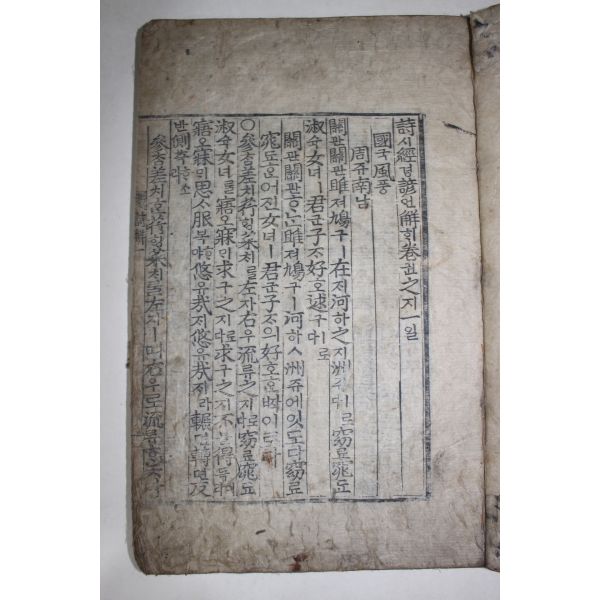 詩시經경諺언解ᄒᆡ卷권之지一일
國국風풍
周쥬南남
關관關관雎져鳩구ㅣ在ᄌᆡ河하之지洲쥬ㅣ로다窈요窕됴
淑슉女녀ㅣ君군子ᄌᆞ好호逑구ㅣ로다
關관關관ᄒᆞᄂᆞᆫ雎져鳩구ㅣ河하ㅅ洲쥬에잇도다窈요
窕됴ᄒᆞᆫ어진女녀ㅣ君군子ᄌᆞ의好호ᄒᆞᆫᄧᅡᆨ이로다
○參ᄎᆞᆷ差치荇ᄒᆡᆼ菜ᄎᆡ를左자右우流류之지로다窈요窕됴
淑슉女녀를寤오寐ᄆᆡ求구之지로다求구之지不불得득이라
寤오寐ᄆᆡ思ᄉᆞ服복ᄒᆞ야悠유哉ᄌᆡ悠유哉ᄌᆡ라輾뎐轉뎐反
반側측ᄒᆞ소라
參ᄎᆞᆷ差치ᄒᆞᆫ荇ᄒᆡᆼ菜ᄎᆡ를左자ㅣ며右우로流류